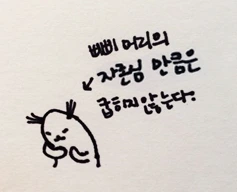 삐삐 머리의
자존심 만큼은
굽히지 않는다!